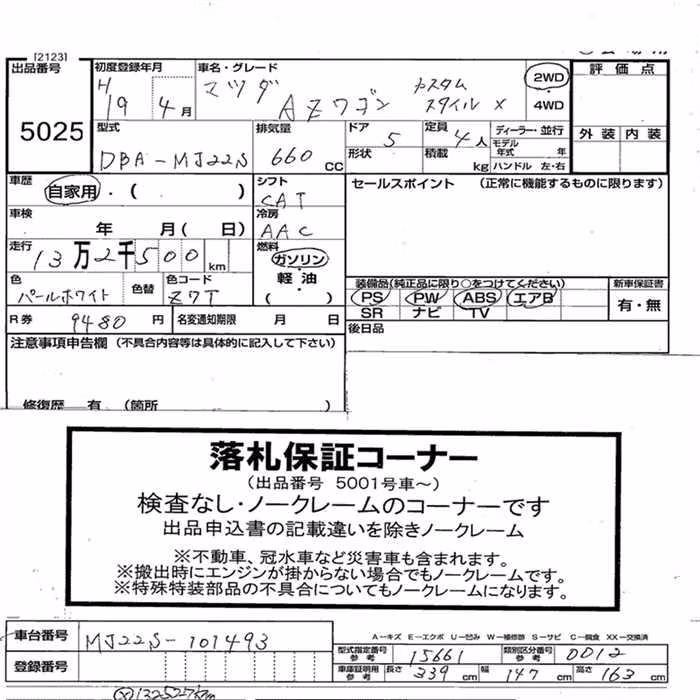 [2123]
出品番号 5025
初度登録年月 H19 4月
車名・グレード マツダ AZワゴン カスタム スタイル X
2WD
4WD
評価点
外装 内装
型式 DBA-MJ22S
排気量 660 CC
ドア 5
形状
定員 4人
積載 kg
ディーラー・並行
モデル年式 年
ハンドル 左・右
車歴 自家用・( )
シフト CAT
セールスポイント (正常に機能するものに限ります)
車検 年 月( 日)
冷房 AAC
走行 13万2千500 km
燃料 ガソリン
軽油
( )
色 パールホワイト
色替
色コード Z7T
装備品(純正品に限り○をつけてください)
新車保証書
PS PW ABS エアB
有・無
SR ナビ TV
R券 9480円
名変通知期限 月 日
後日品
注意事項申告欄 (不具合内容等は具体的に記入して下さい)
修復歴 有 (箇所 )
落札保証コーナー
(出品番号 5001号車~)
検査なし・ノークレームのコーナーです
出品申込書の記載違いを除きノークレーム
※不動車、冠水車など災害車も含まれます。
※搬出時にエンジンが掛からない場合でもノークレームです。
※特殊特装部品の不具合についてもノークレームになります。
車台番号 MJ22S-101493
A-キズ E-エクボ U-凹み W-補修跡 S-サビ C-腐食 XX-交換済
型式指定番号 参考 15661
類別区分番号 参考 0012
登録番号
車庫証明用 参考 長さ 339 cm 幅 147 cm 高さ 163 cm